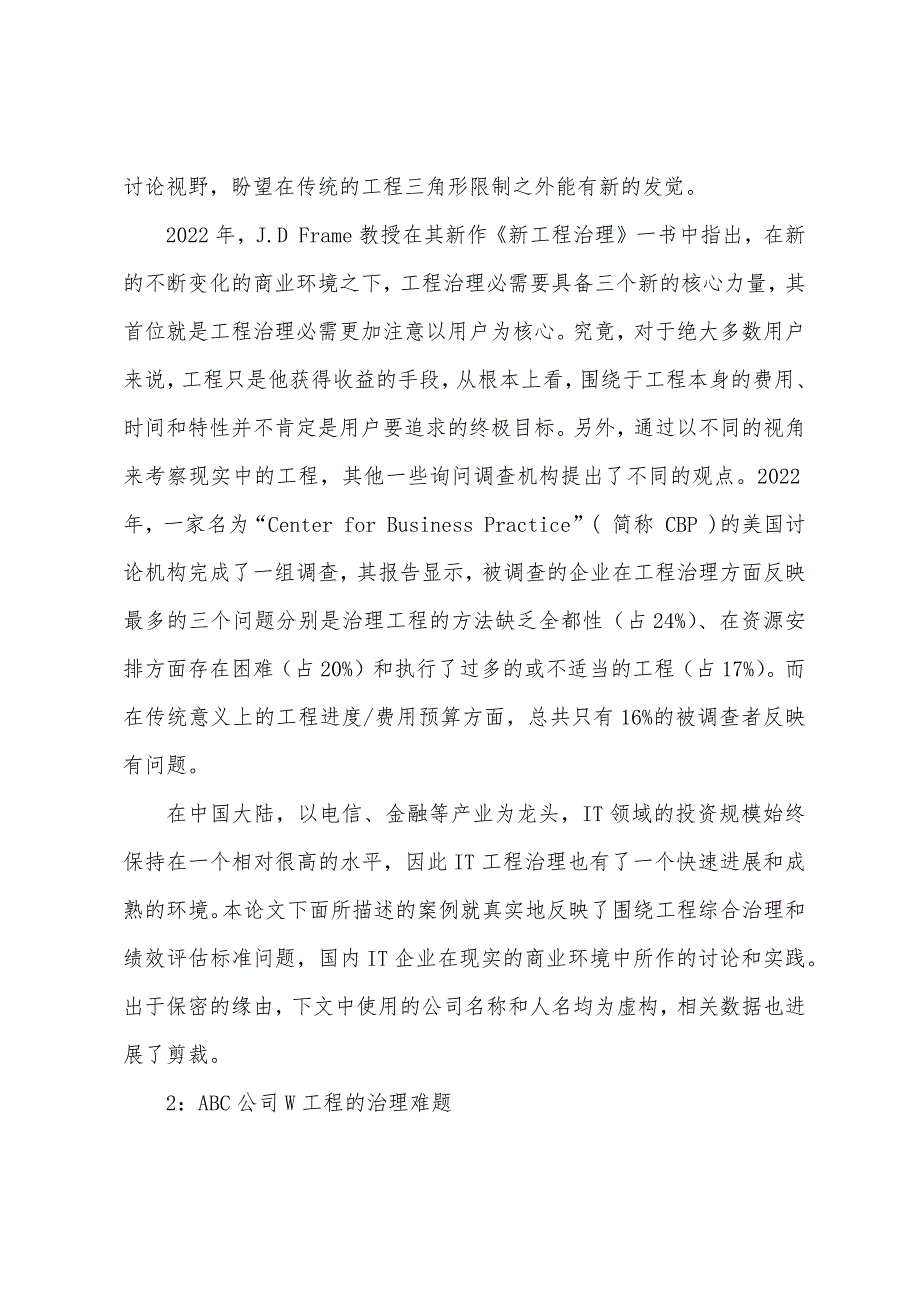 讨论视野，盼望在传统的工程三角形限制之外能有新的发觉。
2022 年，J.D Frame 教授在其新作《新工程治理》一书中指出，在新
的不断变化的商业环境之下，工程治理必需要具备三个新的核心力量，其
首位就是工程治理必需更加注意以用户为核心。究竟，对于绝大多数用户
来说，工程只是他获得收益的手段，从根本上看，围绕于工程本身的费用、
时间和特性并不肯定是用户要追求的终极目标。另外，通过以不同的视角
来考察现实中的工程，其他一些询问调查机构提出了不同的观点。2022
年，一家名为“Center for Business Practice”( 简称 CBP )的美国讨
论机构完成了一组调查，其报告显示，被调查的企业在工程治理方面反映
最多的三个问题分别是治理工程的方法缺乏全都性（占 24%）、在资源安
排方面存在困难（占 20%）和执行了过多的或不适当的工程（占 17%）。而
在传统意义上的工程进度/费用预算方面，总共只有 16%的被调查者反映
有问题。
在中国大陆，以电信、金融等产业为龙头，IT 领域的投资规模始终
保持在一个相对很高的水平，因此 IT 工程治理也有了一个快速进展和成
熟的环境。本论文下面所描述的案例就真实地反映了围绕工程综合治理和
绩效评估标准问题，国内 IT 企业在现实的商业环境中所作的讨论和实践。
出于保密的缘由，下文中使用的公司名称和人名均为虚构，相关数据也进
展了剪裁。
2：ABC 公司 W 工程的治理难题